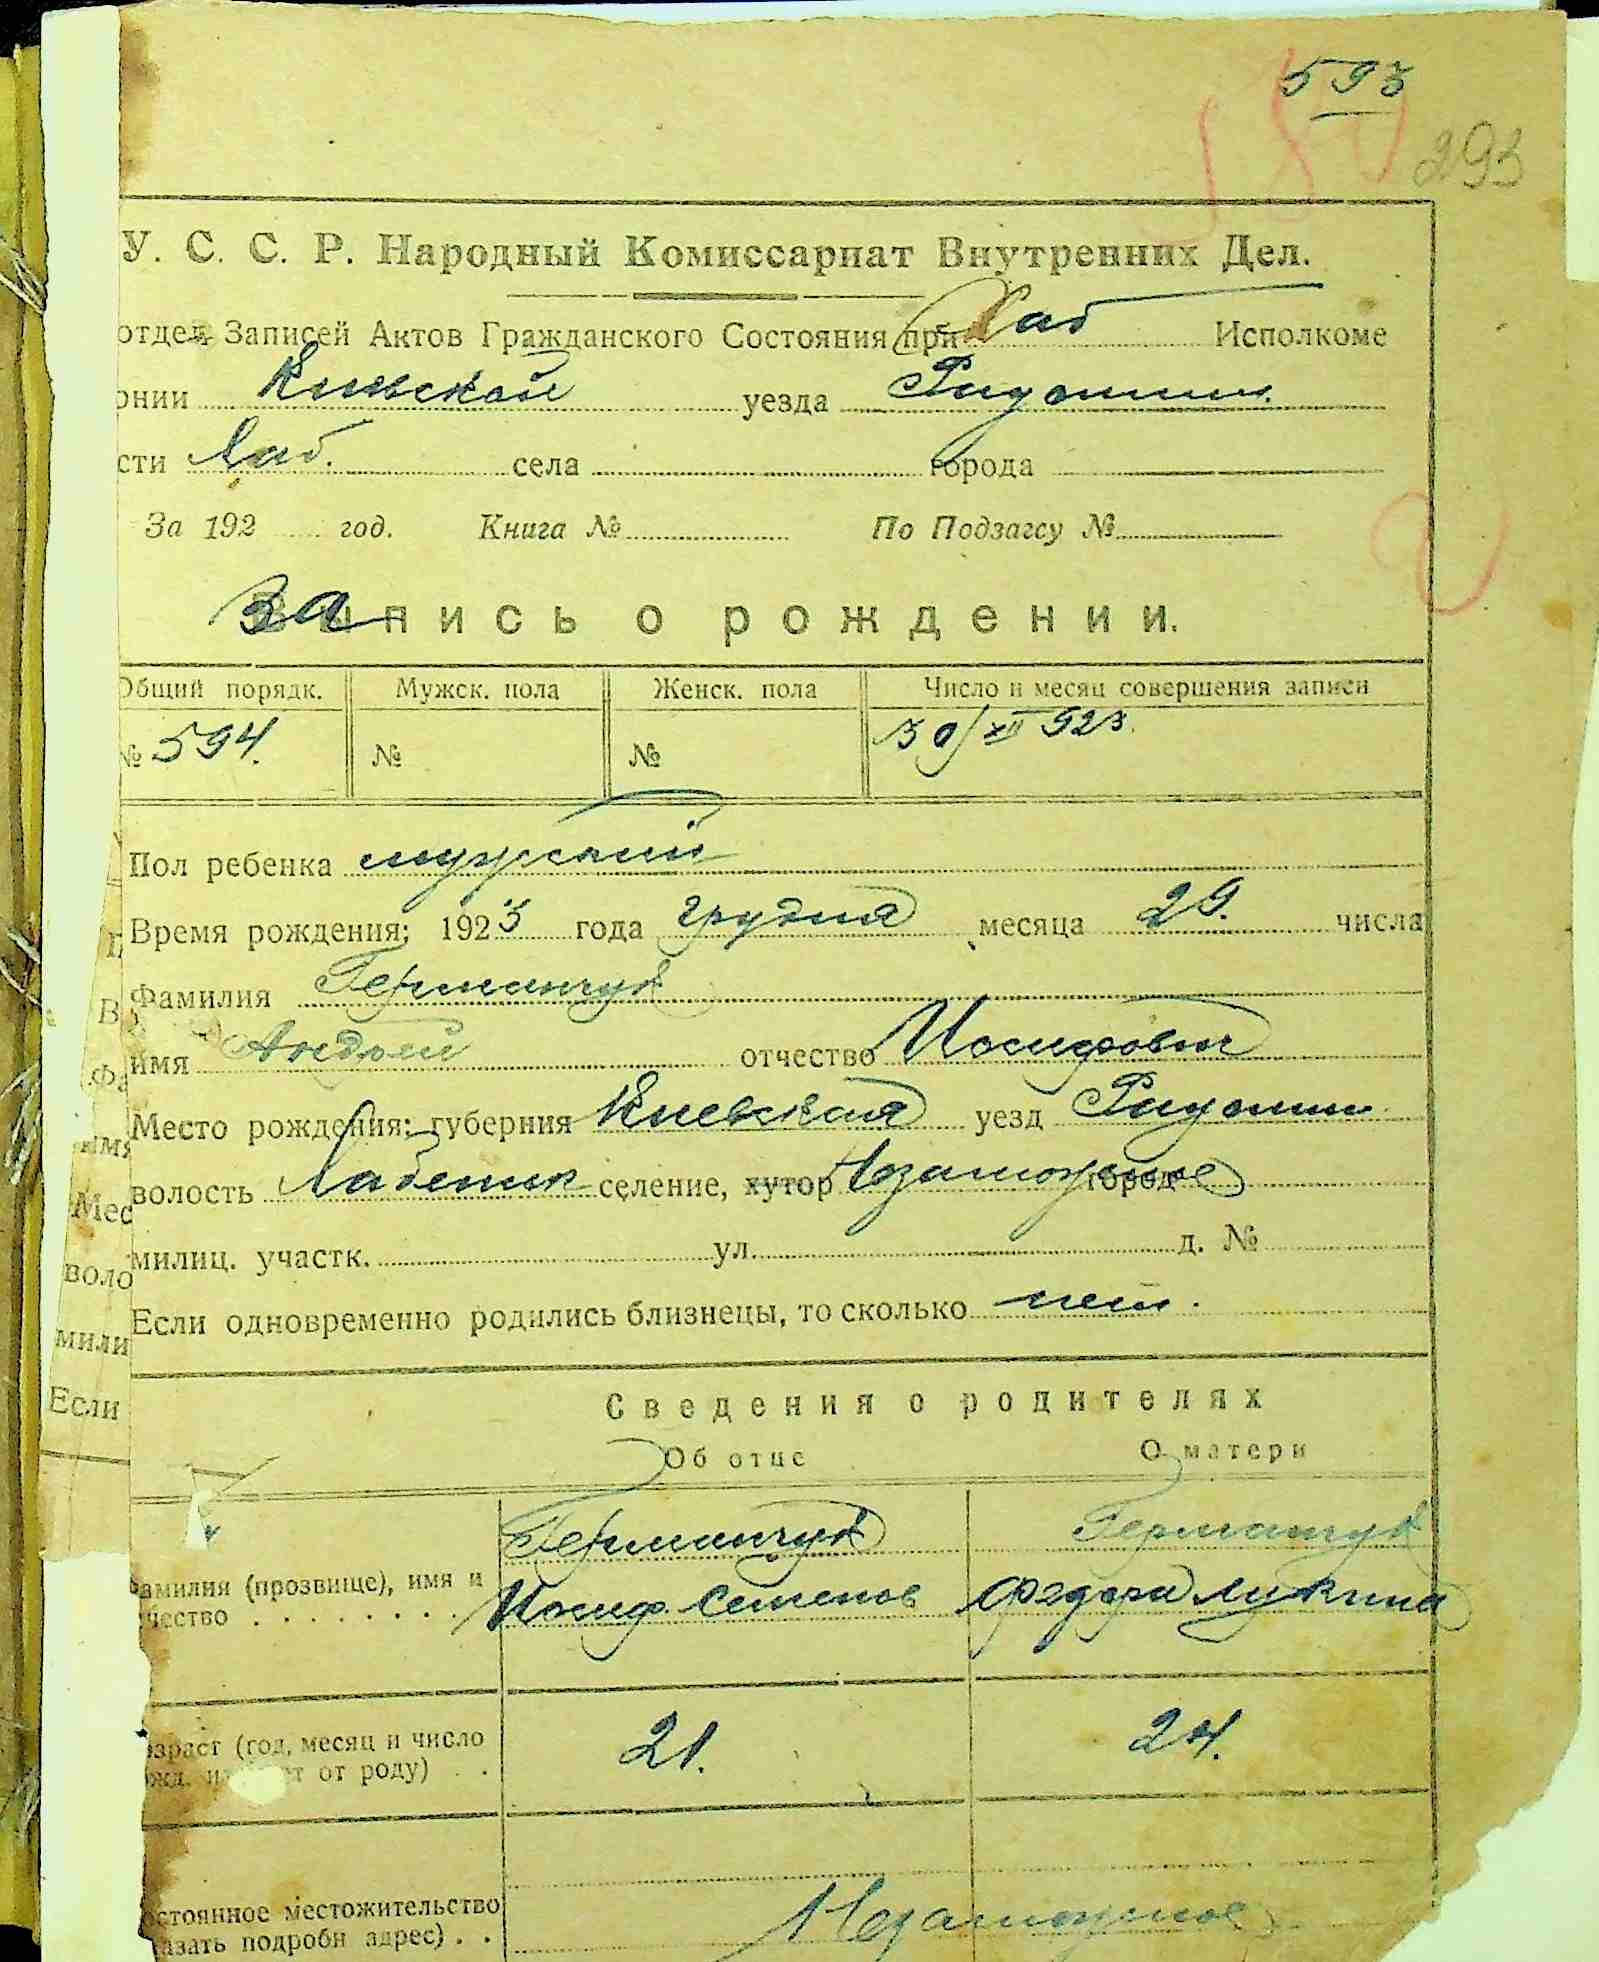 593
293
У. С. С. Р. Народный Комиссариат Внутренних Дел.
отдел Записей Актов Гражданского Состояния при Хаб Исполкоме
рнии Киевской уезда
сти Хаб. села города
За 192 год. Книга № По Подзагсу №
Запись о рождении.
Общий порядк. Мужск. пола Женск. пола Число и месяц совершения записи
№ 594. № № 30/XII 923.
Пол ребенка мужский
Время рождения; 1923 года грудня месяца 29. числа
Фамилия Германчук
имя Андрей отчество Иосифович
Место рождения: губерния Киевская уезд
волость селение, хутор город
милиц. участк. ул. д. №
Если одновременно родились близнецы, то сколько нет.
Сведения о родителях
Об отце О матери
Германчук Германчук
амилия (прозвище), имя и
чество Иосиф Семенов Федора Лукина
зраст (год, месяц и число
ожд. от роду) 21. 24.
стоянное местожительство
азать подробн адрес)
В
Фа
имя
Мес
воло
мили
Если